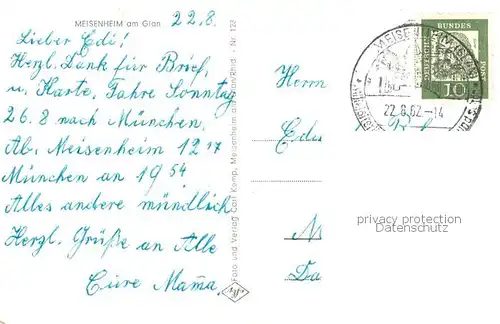 MEISENHEIM am Glan
22.8.
Lieber Edi!
Herzl. Dank für Brief,
u. Karte, Fahre Sonntag
26.8 nach München,
Ab. Meisenheim 12 17
München an 19 54
Alles andere mündlich
Herzl. Grüße an Alle
Eure Mama.
Foto und Verlag Carl Kemp, Meisenheim a. Glan/Rhld. · Nr. 122
Herrn
DEUTSCHE
BUNDES
POST
10
MEISENHEIM
22.8.62-14
privacy protection
Datenschutz